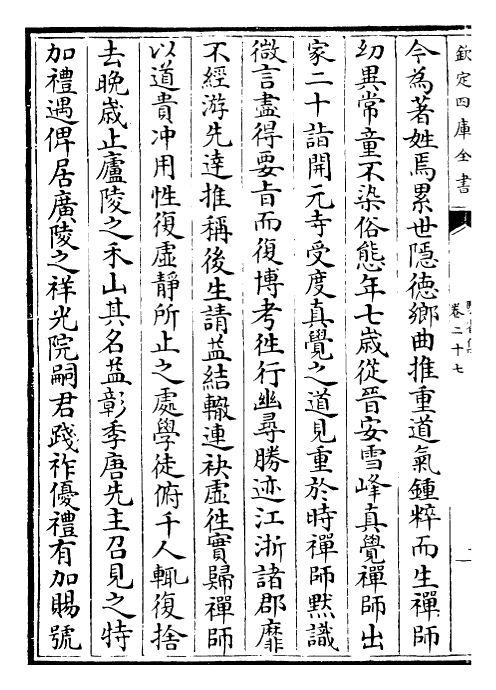 欽定四庫全書
卷二十七
今為著姓焉累世隱徳鄉曲推重道氣鍾粹而生禪師
幼異常童不染俗態年七歳從晉安雪峰真覺禪師出
家二十詣開元寺受度真覺之道見重於時禪師黙識
微言盡得要㫖而復博考徃行幽尋勝迹江浙諸郡靡
不經游先達推稱後生請益結轍連袂虛徃實歸禪師
以道貴冲用性復虛靜所止之處學徒俯千人輒復捨
去晚歳止廬陵之禾山其名益彰季唐先主召見之特
加禮遇俾居廣陵之祥光院嗣君踐祚優禮有加賜號